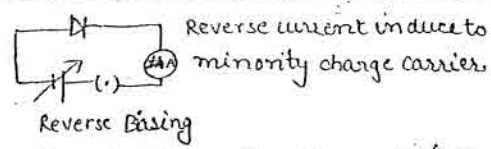 Reverse current induce to
minority charge carrier
(·)
µA
Reverse Biasing